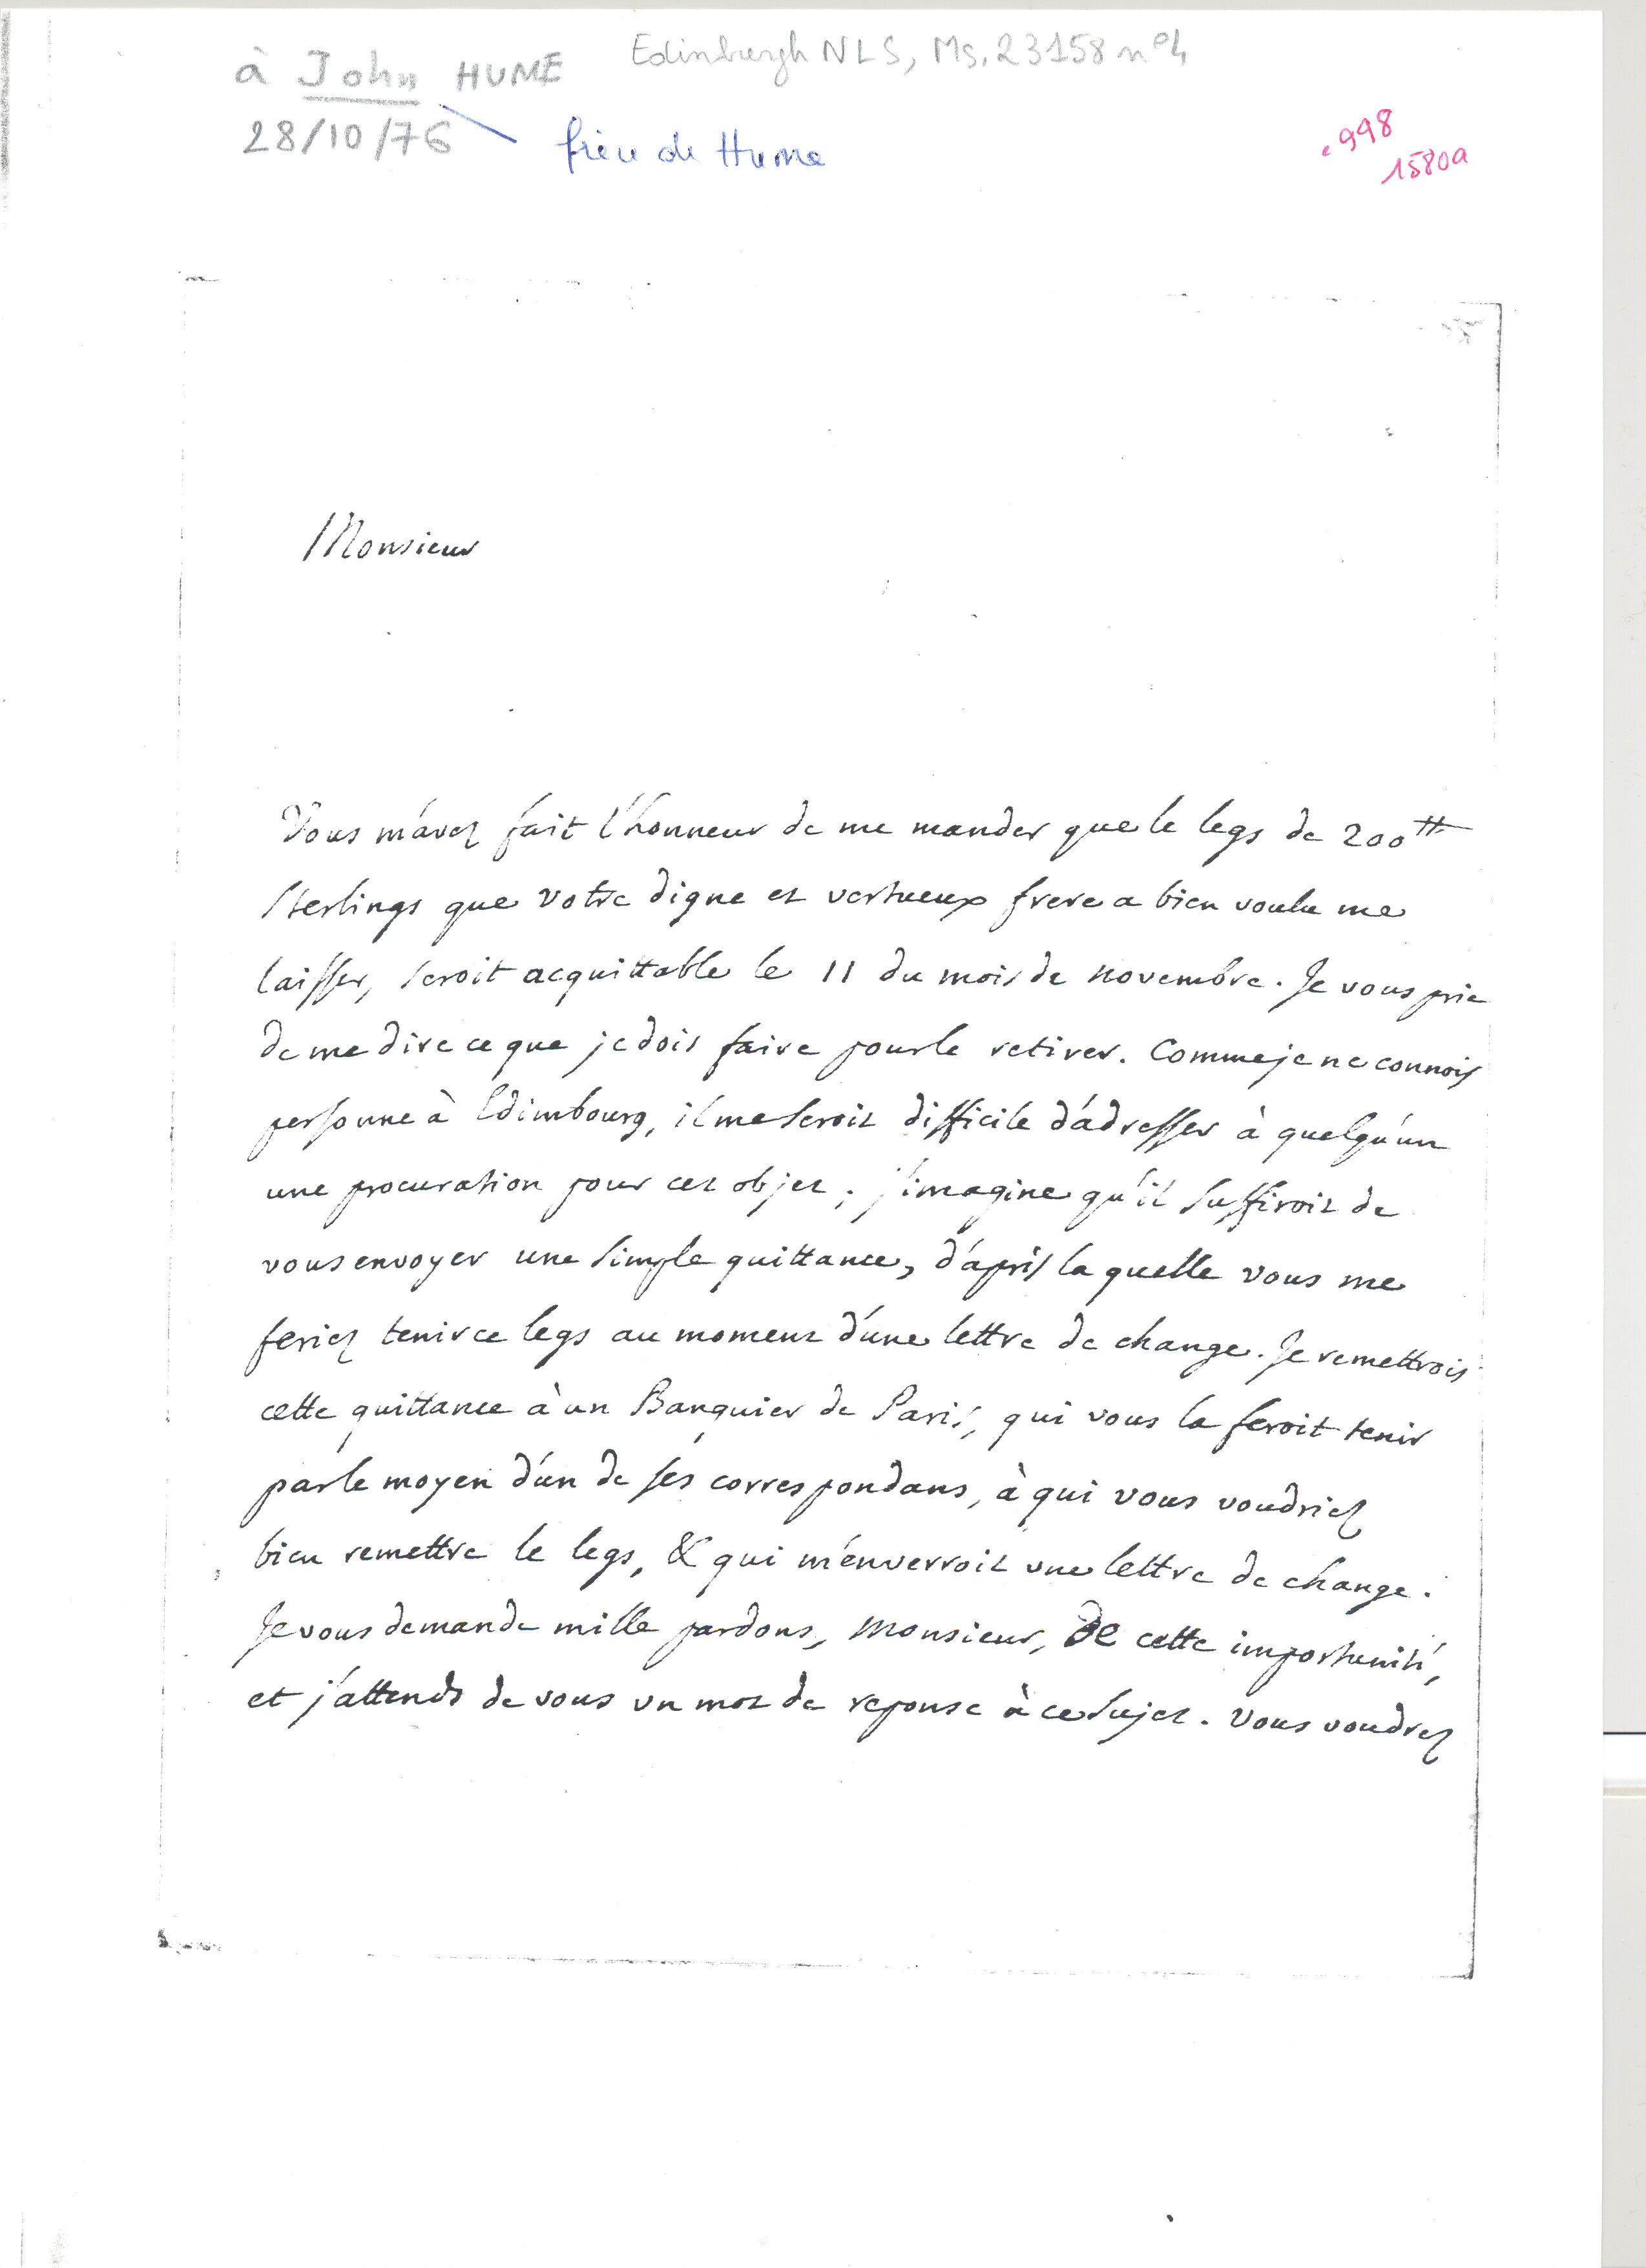 à John HUME
Edinburgh NLS, Ms. 23158 n°4
28/10/76
frère de Hume
998
1580a
Monsieur
Vous m'avez fait l'honneur de me mander que le legs de 200tt
sterlings que votre digne et vertueux frere a bien voulu me
laisser, seroit acquittable le 11 du mois de novembre. Je vous prie
de me dire ce que je dois faire pour le retirer. Comme je ne connois
personne à Edimbourg, il me seroit difficile d'adresser à quelqu'un
une procuration pour cet objet ; j'imagine qu'il suffiroit de
vous envoyer une simple quittance, d'après laquelle vous me
feriez tenir ce legs au moment d'une lettre de change. Je remettrois
cette quittance à un Banquier de Paris, qui vous la feroit tenir
par le moyen d'un de ses correspondans, à qui vous voudriez
bien remettre le legs, & qui m'enverroit une lettre de change.
Je vous demande mille pardons, Monsieur, de cette importunité,
et j'attends de vous un mot de reponse à ce sujet. Vous voudrez